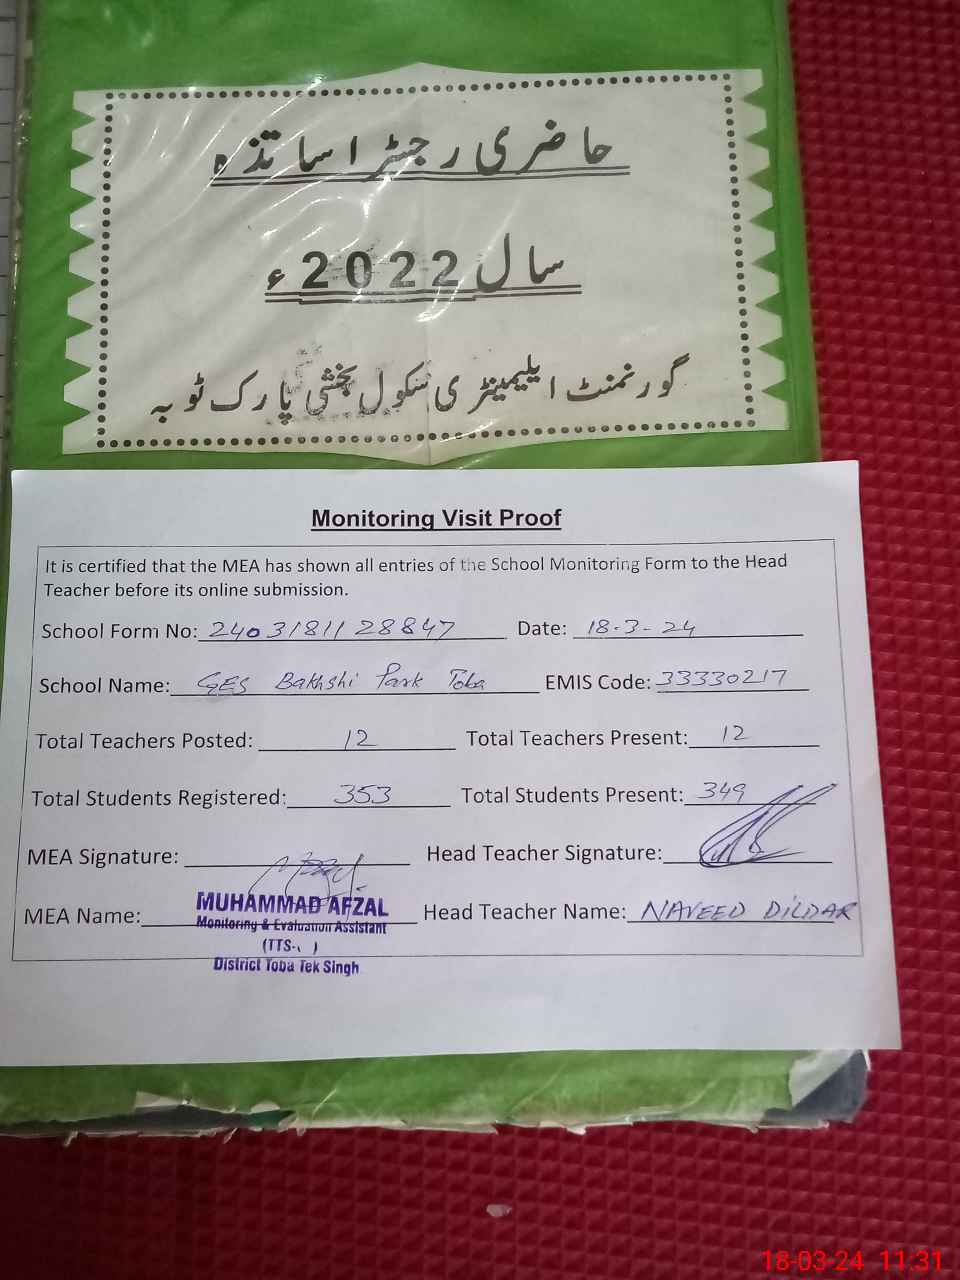 حاضری رجسٹر اساتذہ
سال 2022ء
گورنمنٹ ایلیمینٹری سکول بخشی پارک ٹوبہ
Monitoring Visit Proof
It is certified that the MEA has shown all entries of the School Monitoring Form to the Head
Teacher before its online submission.
School Form No: 24031811 28847 Date: 18-3-24
School Name: GES Bakhshi Park Toba EMIS Code: 33330217
Total Teachers Posted: 12 Total Teachers Present: 12
Total Students Registered: 353 Total Students Present: 349
MEA Signature: Head Teacher Signature:
MEA Name: MUHAMMAD AFZAL Head Teacher Name: NAVEED DILDAR
Monitoring & Evaluation Assistant
(TTS- )
District Toba Tek Singh
18-03-24 11:31